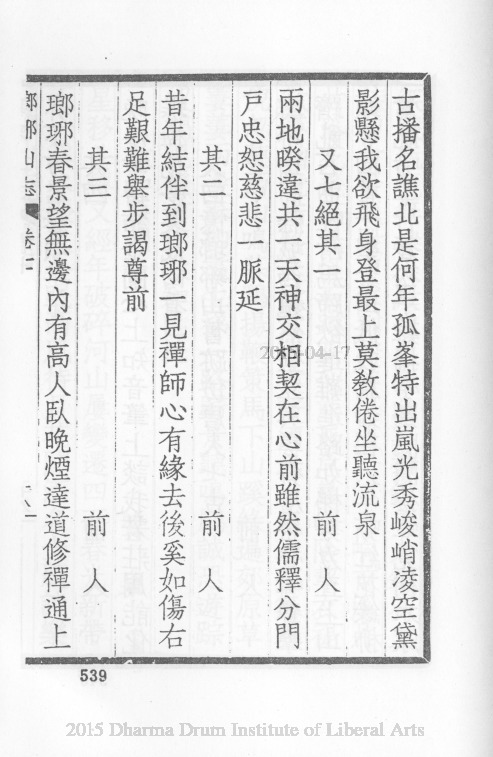 古播名譙北是何年孤峯特出嵐光秀峻峭凌空黛
影懸我欲飛身登最上莫教倦坐聽流泉
又七絕其一 前人
兩地暌違共一天神交相契在心前雖然儒釋分門
戸忠恕慈悲一脈延
其二 前人
昔年結伴到瑯琊一見禪師心有緣去後奚如傷右
足艱難舉步謁尊前
其三 前人
瑯琊春景望無邊內有高人臥晚煙達道修禪通上
瑯琊山志 卷
539
2015 Dharma Drum Institute of Liberal Arts